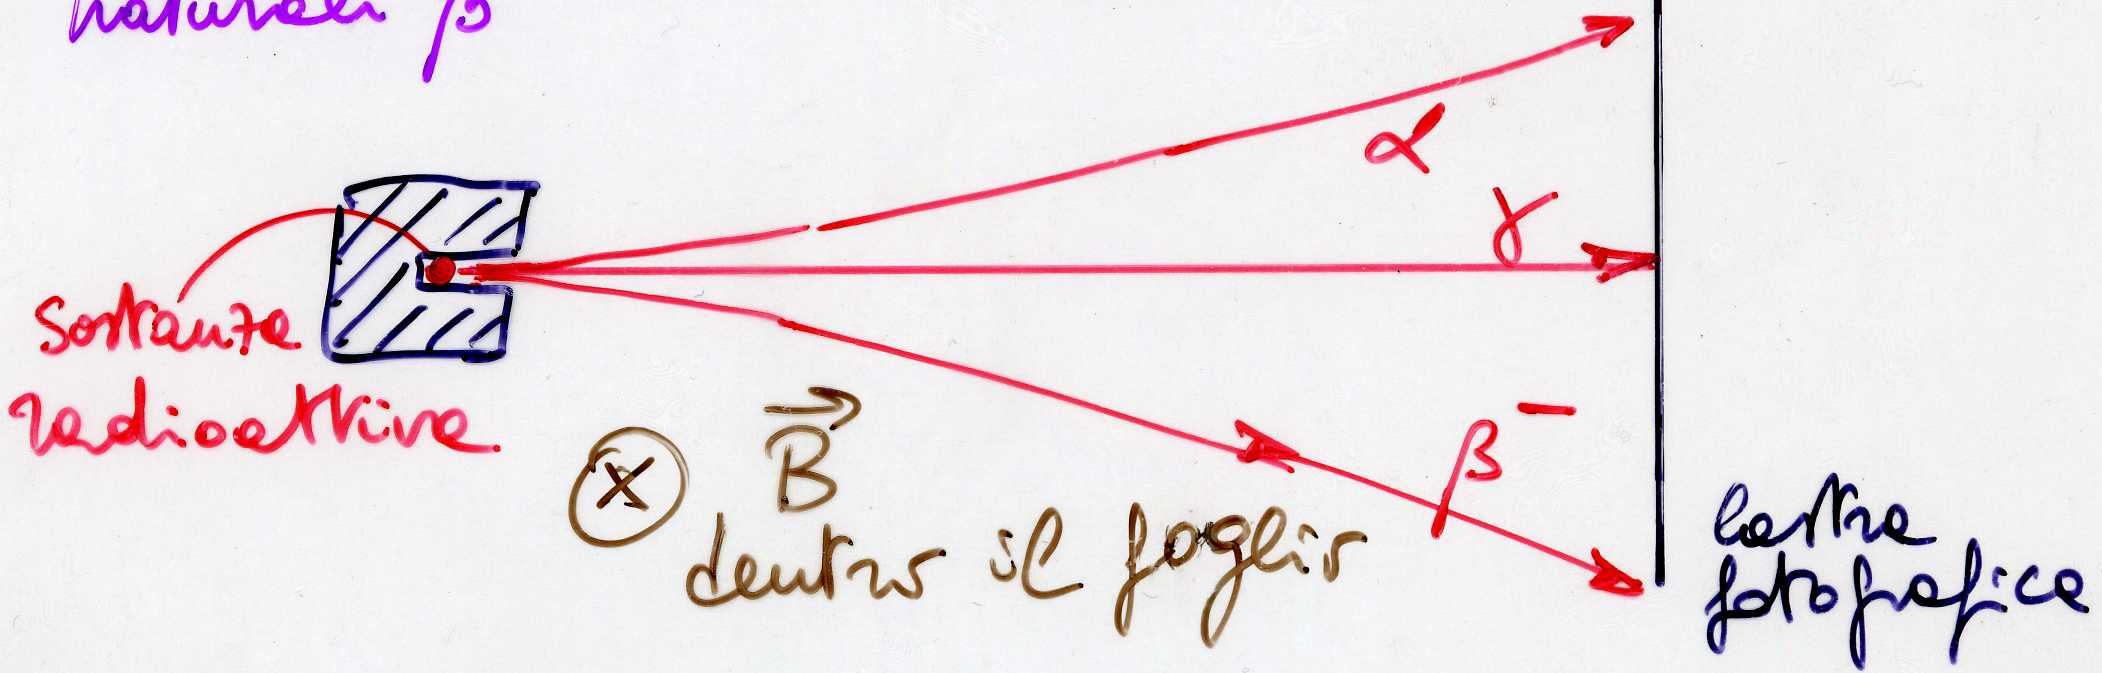 naturali β
α
γ
Sostanza
radioattiva
β⁻
X B⃗
dentro il foglio
lastra
fotografica